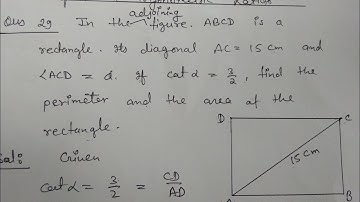 adjoining
Ques 29 In the figure. ABCD is a
rectangle. Its diagonal AC = 15 cm and
∠ACD = α. If cot α = 3/2, find the
perimeter and the area of the
rectangle.
Sol: Given
cot α = 3/2 = CD/AD
D C
15 cm
A B